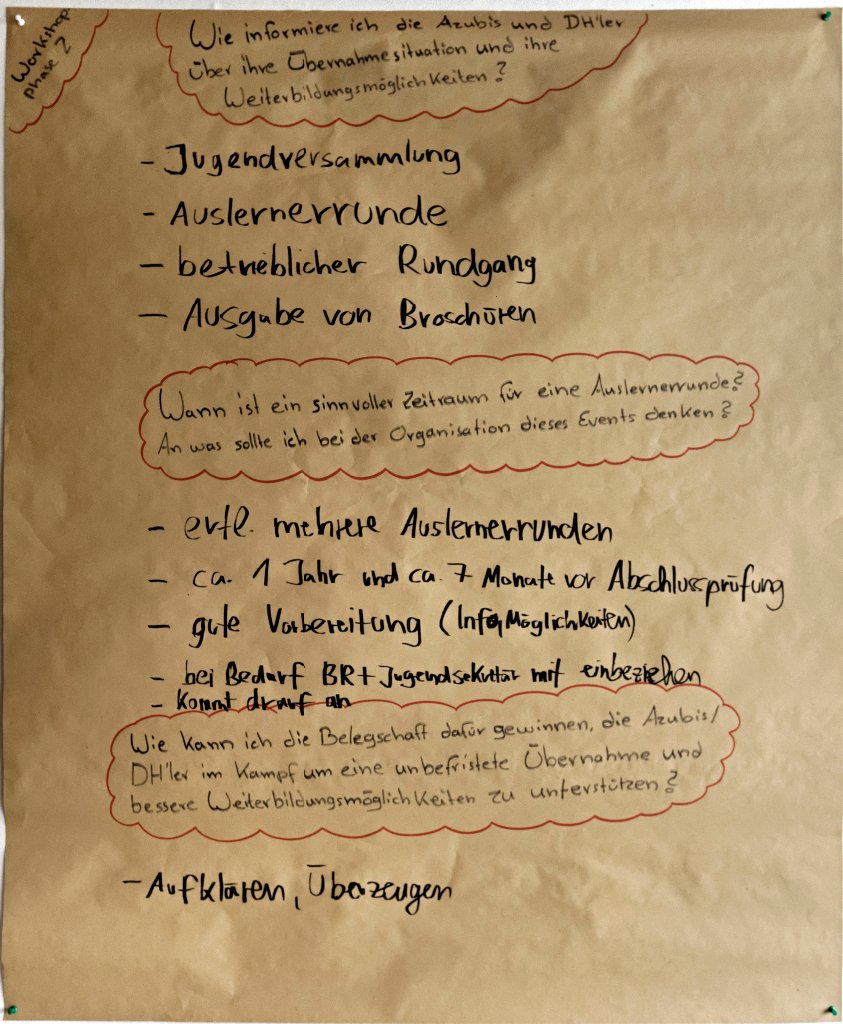 Workshop
phase 2
Wie informiere ich die Azubis und DH'ler
über ihre Übernahmesituation und ihre
Weiterbildungsmöglichkeiten?
- Jugendversammlung
- Auslernerrunde
- betrieblicher Rundgang
- Ausgabe von Broschüren
Wann ist ein sinnvoller Zeitraum für eine Auslernerrunde?
An was sollte ich bei der Organisation dieses Events denken?
- evtl. mehrere Auslernerrunden
- ca. 1 Jahr und ca. 7 Monate vor Abschlussprüfung
- gute Vorbereitung (Info, Möglichkeiten)
- bei Bedarf BR + Jugendsekretär mit einbeziehen
- kommt drauf an
Wie kann ich die Belegschaft dafür gewinnen, die Azubis/
DH'ler im Kampf um eine unbefristete Übernahme und
bessere Weiterbildungsmöglichkeiten zu unterstützen?
- Aufklären, Überzeugen